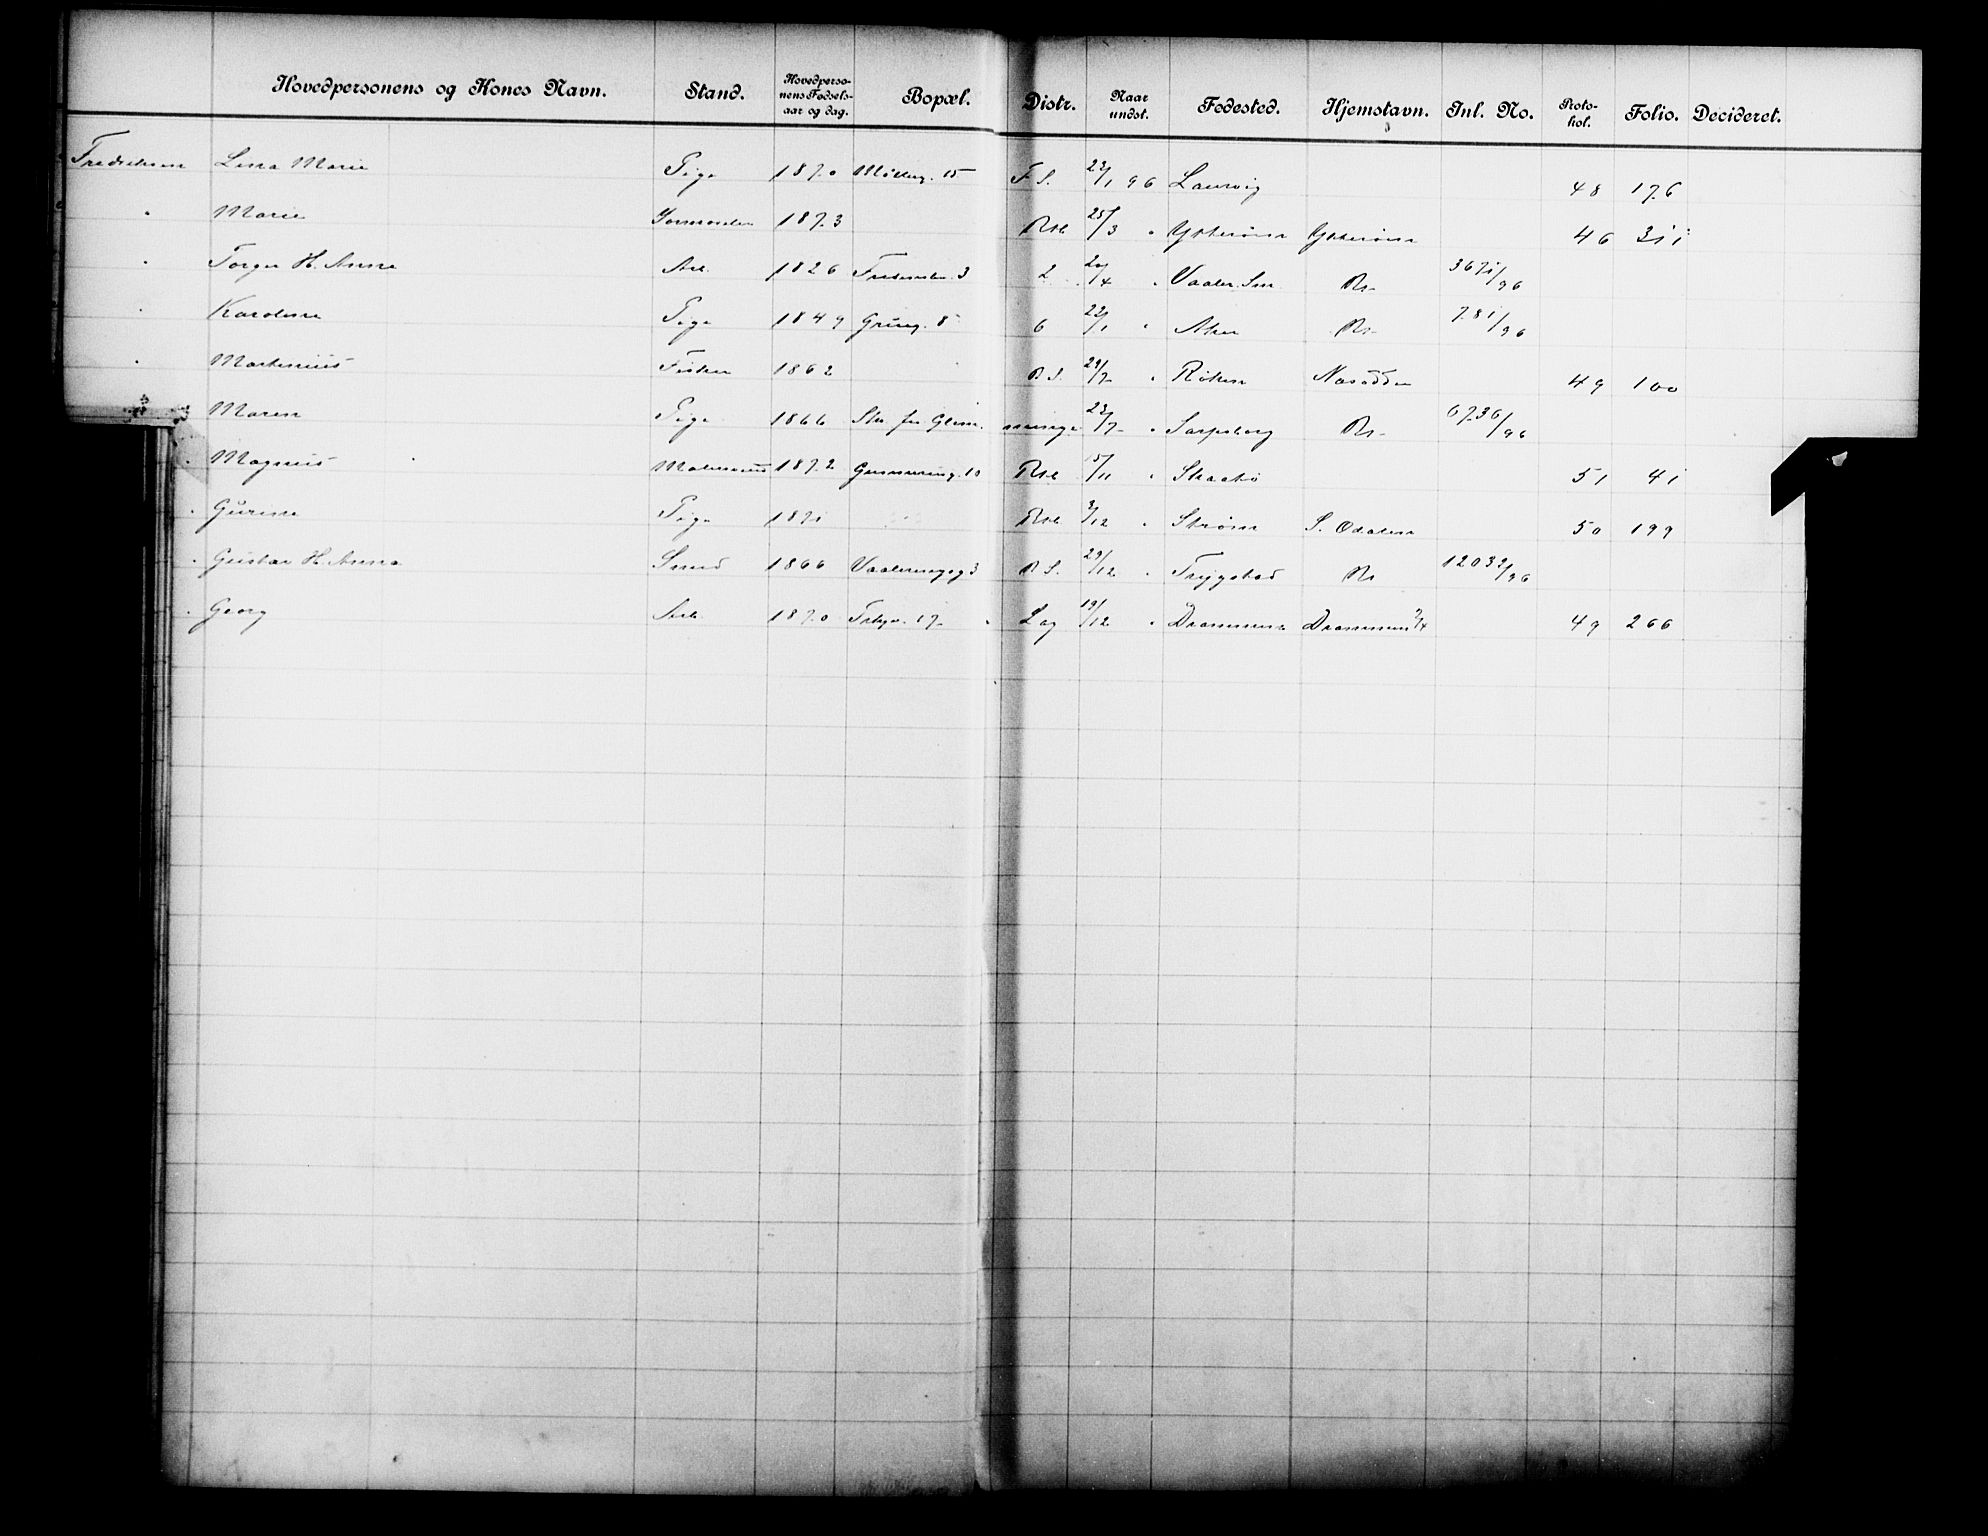 Hovedpersonens og Kones Navn. Stand. Hovedpersonens Fødselsaar og dag. Bopæl. Distr. Naar undst. Fødested. Hjemstavn. Inl. No. Protokol. Folio. Decideret.
Fredriksen Lina Marie Pige 1870 Möllerg. 15 F S. 22/1 96 Laurvig 48 176
" Marie 1873 Rst 25/3 " Ytterøen Ytterøen 46 311
" Torger H. Anna Arb. 1826 3 2 20/4 " Vaaler. Sm Kr 3671/96
" Karoline Pige 1849 Grüng. 8 6 22/1 " Aker Kr 781/96
" Martinius Fisker 1862 R S. 29/7 " Røken Næsodden 49 100
Maren Pige 1866 23/7 " Sarpsborg Kr 6736/96
" Magnus 1872 10 Rst 15/11 " Skaatø 51 41
" Gurine Pige 1871 Rst 3/12 " Strøm S. Odalen 50 199
" Gustav H. Anna Smed 1866 Vaalerengg 3 R S. 29/12 " Trygstad Kr 12032/96
" Georg Arb. 1870 17 Lag 19/12 " Drammen Drammen 49 266